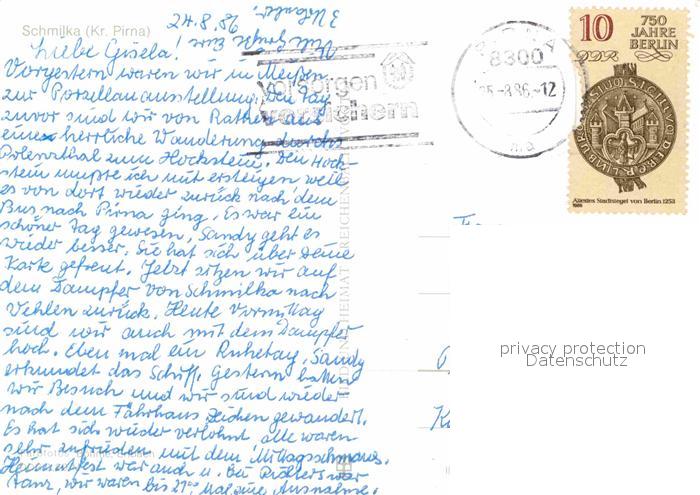 Schmilka (Kr. Pirna)
24.8.86
Liebe Gisela!
Vorgestern waren wir in Meißen
zur Porzellanausstellung. Den Tag
zuvor sind wir von Rathen aus
eine herrliche Wanderung durchs
Polenztal zum Hockstein. Den Hock-
stein mußte ich mit ersteigen weil
es von dort wieder zurück nach dem
Bus nach Pirna ging, es war ein
schöner Tag gewesen, Sandy geht es
wieder besser. Sie hat sich über Deine
Karte gefreut. Jetzt sitzen wir auf
dem Dampfer von Schmilka nach
Vehlen zurück. Heute Vormittag
sind wir auch mit dem Dampfer
hoch. Eben mal ein Ruhetag, Sandy
erkundet das Schiff. Gestern hatten
wir Besuch und wir sind wieder
nach dem Fährhaus Zeichen gewandert.
Es hat sich wieder verlohnt alle waren
sehr zufrieden mit dem Mittagschmaus.
Heimatfest war auch u. bei Richters war
Tanz, wir waren bis 21°° Mal eine Ausnahme.
vorsorgen
versichern
8300
25.-8.86.-12
10
750
JAHRE
BERLIN
DDR
Ältestes Stadtsiegel von Berlin 1253
1986
privacy protection
Datenschutz